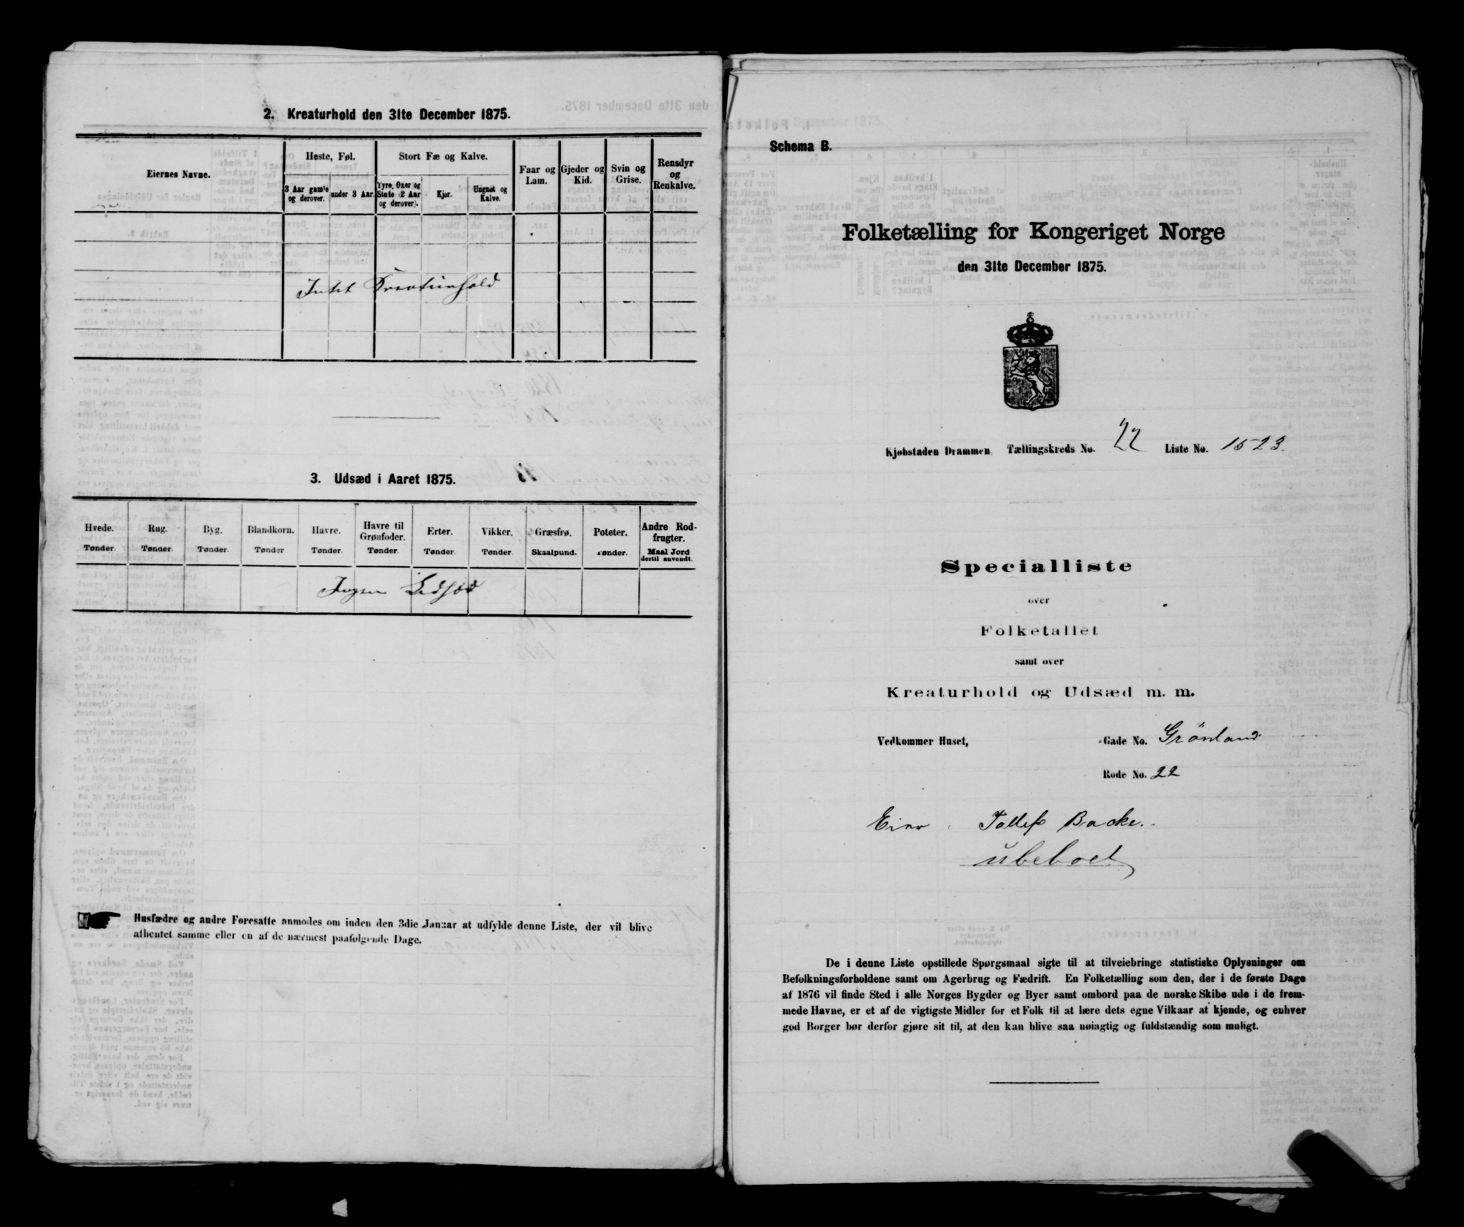 2. Kreaturhold den 31te December 1875.
Eiernes Navne.
Heste, Føl.
Stort Fæ og Kalve.
Faar og Lam.
Gjeder og Kid.
Svin og Grise.
Rensdyr og Renkalve.
3 Aar gamle og derover.
under 3 Aar.
Tyre, Oxer og Stude (2 Aar og derover).
Kjør.
Ungnøt og Kalve.
Intet Kreaturhold
3. Udsæd i Aaret 1875.
Hvede. Rug. Byg. Blandkorn. Havre. Havre til Grønfoder. Erter. Vikker. Græsfrø. Poteter. Andre Rodfrugter.
Tønder. Tønder. Tønder. Tønder Tønder. Tønder. Tønder. Tønder. Skaalpund. Tønder. Maal Jord dertil anvendt.
Ingen Udsæd
Husfædre og andre Foresatte anmodes om inden den 3die Januar at udfylde denne Liste, der vil blive
afhentet samme eller en af de nærmest paafølgende Dage.
Schema B.
Folketælling for Kongeriget Norge
den 31te December 1875.
Kjøbstaden Drammen. Tællingskreds No. 22 Liste No. 1523.
Specialliste
over
Folketallet
samt over
Kreaturhold og Udsæd m. m.
Vedkommer Huset, Gade No. Grönland
Rode No. 22
Eier Tollef Backe.
ubeboet
De i denne Liste opstillede Spørgsmaal sigte til at tilveiebringe statistiske Oplysninger om
Befolkningsforholdene samt om Agerbrug og Fædrift. En Folketælling som den, der i de første Dage
af 1876 vil finde Sted i alle Norges Bygder og Byer samt ombord paa de norske Skibe ude i de frem-
mede Havne, er et af de vigtigste Midler for et Folk til at lære dets egne Vilkaar at kjende, og enhver
god Borger bør derfor gjøre sit til, at den kan blive saa nøiagtig og fuldstændig som muligt.